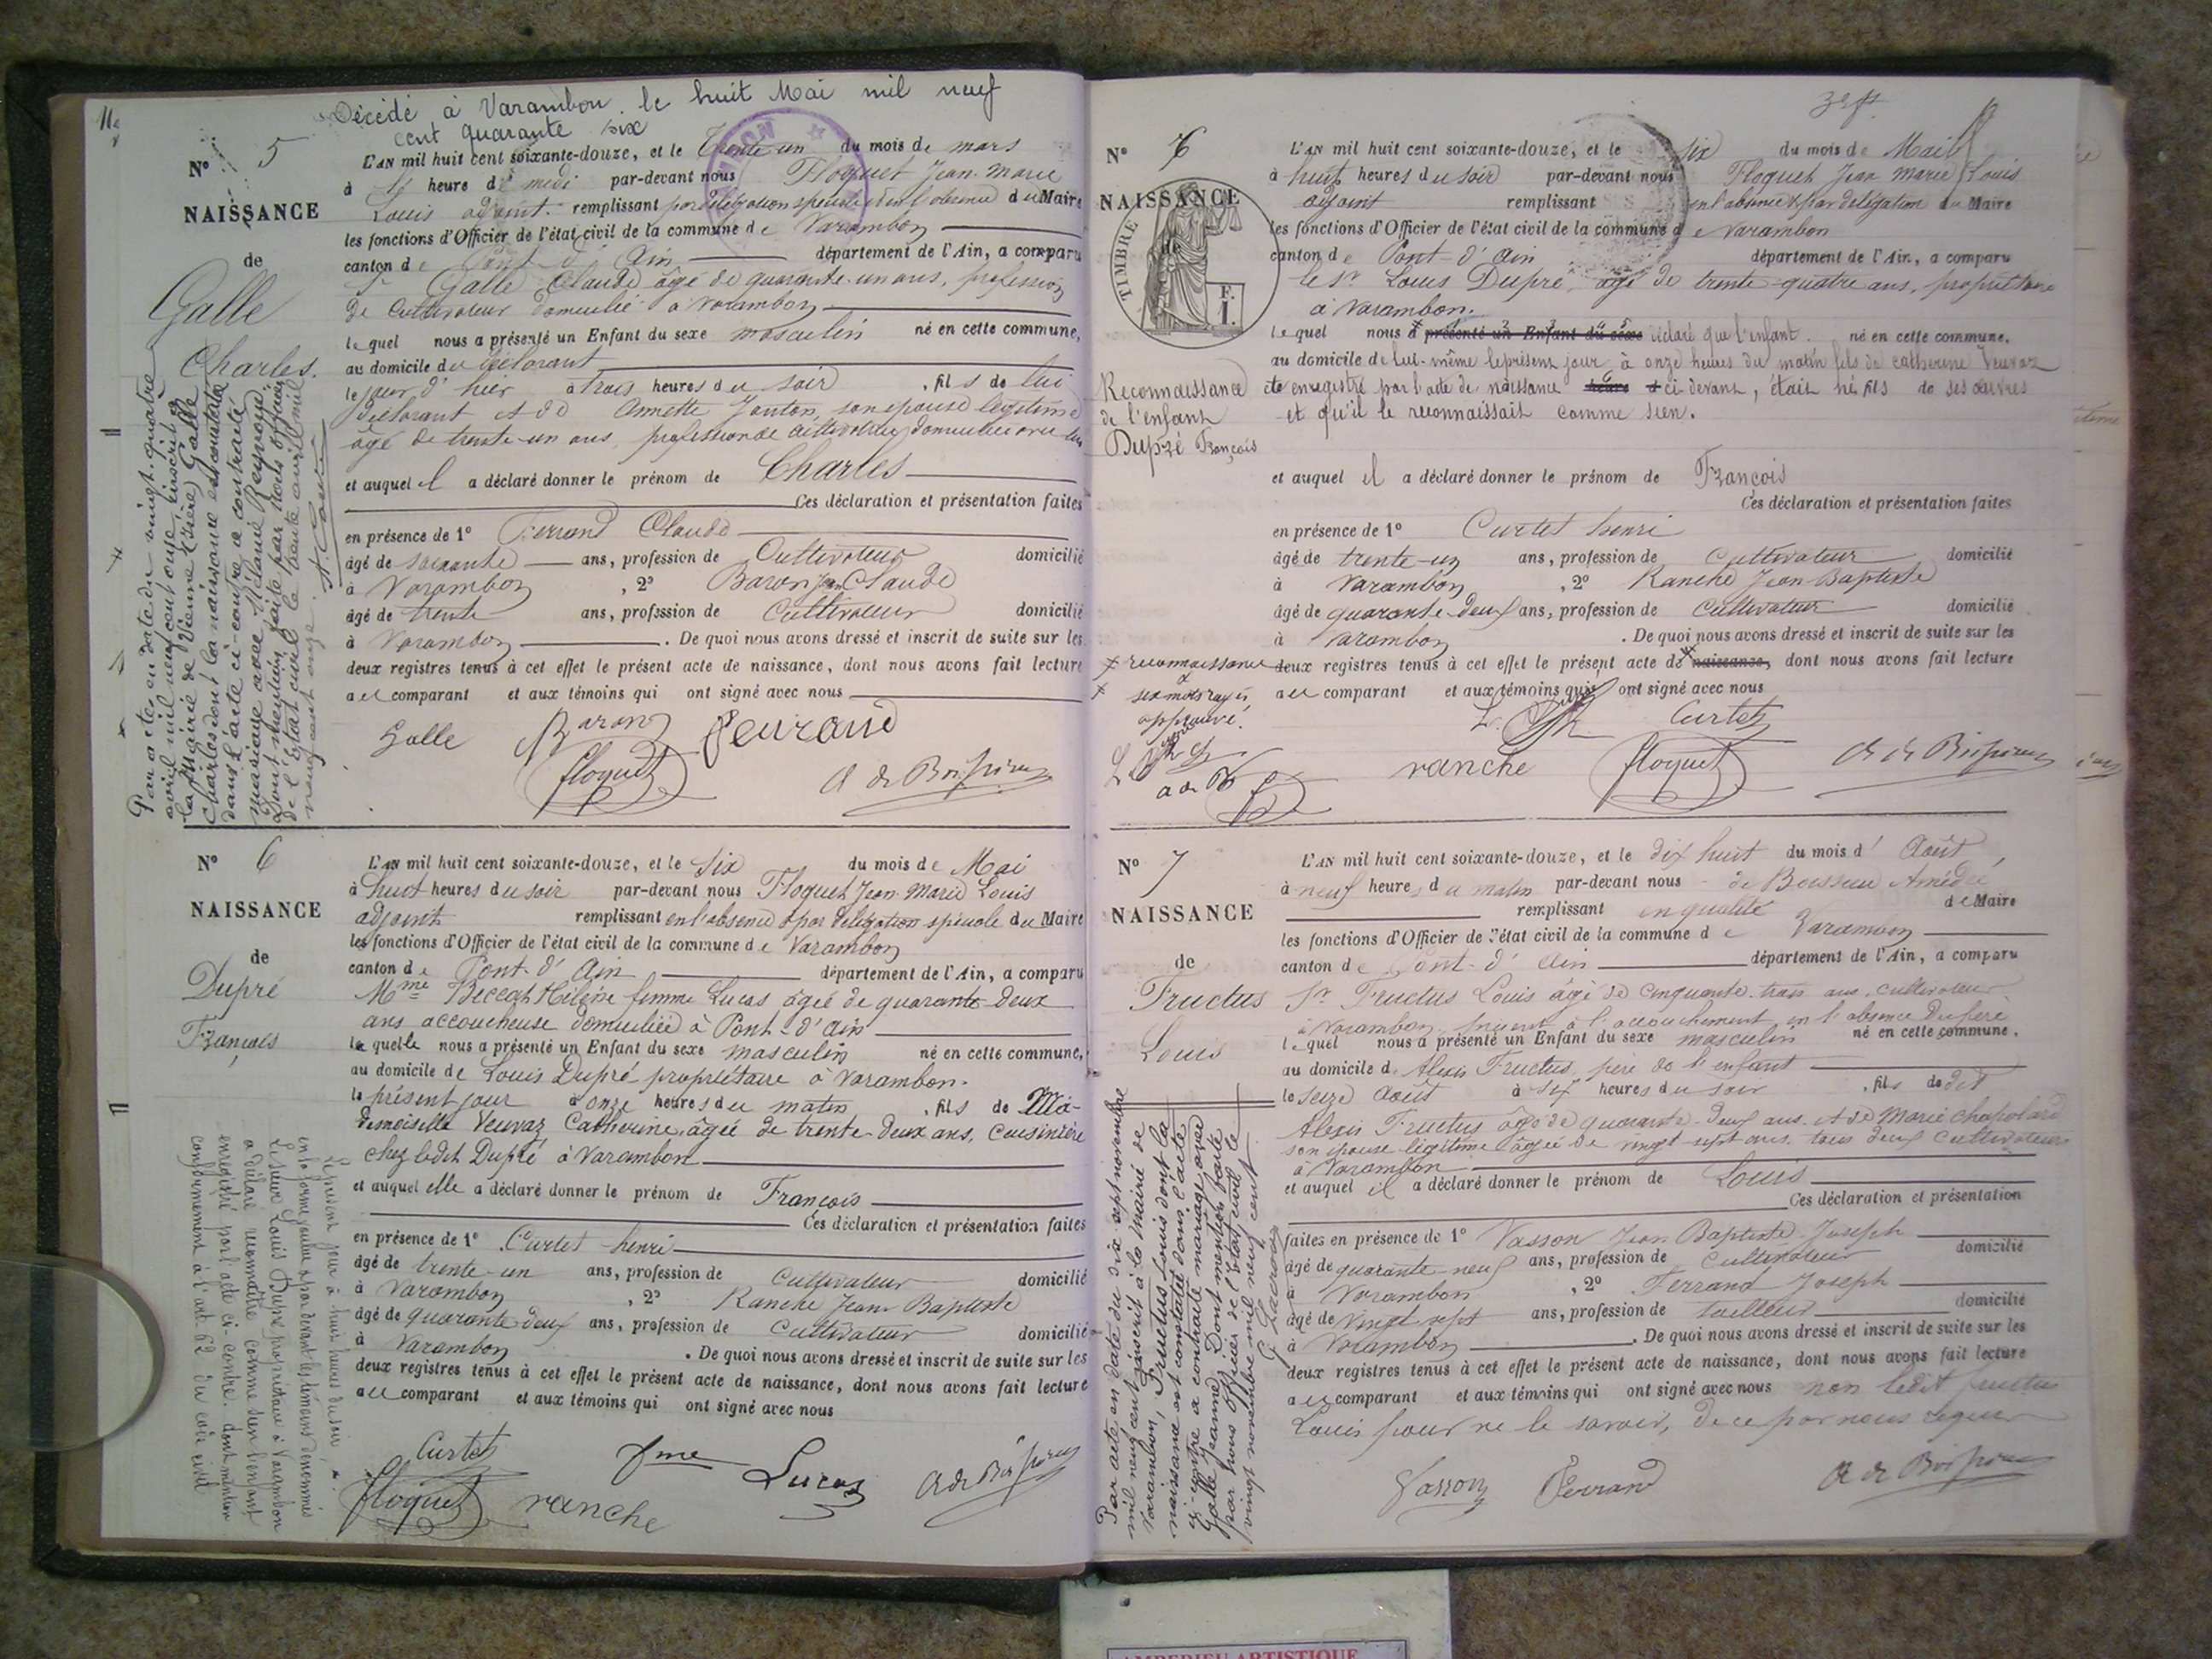 Décédé à Varambon le huit Mai mil neuf
cent quarante six
N° 5
NAISSANCE
de
Galle
Charles.
L'AN mil huit cent soixante-douze, et le Trente-un du mois de mars
à heure de midi par-devant nous Floquet Jean Marie
Louis adjoint remplissant par délégation spéciale et en l'absence du Maire
les fonctions d'Officier de l'état civil de la commune de Varambon
canton de Pont d'Ain département de l'Ain, a comparu
Sr Galle Claude âgé de quarante-un ans, profession
de Cultivateur domicilié à Varambon
lequel nous a présenté un Enfant du sexe masculin né en cette commune,
au domicile du déclarant
le jour d'hier à trois heures du soir, fils de lui
déclarant et de Annette Janton, son épouse légitime
âgé de trente-un ans, profession de cultivateur domiciliée avec lui
et auquel il a déclaré donner le prénom de Charles
Ces déclaration et présentation faites
en présence de 1° Ferrand Claude
âgé de soixante ans, profession de Cultivateur domicilié
à Varambon, 2° Baron Jean Claude
âgé de trente ans, profession de Cultivateur domicilié
à Varambon. De quoi nous avons dressé et inscrit de suite sur les
deux registres tenus à cet effet le présent acte de naissance, dont nous avons fait lecture
au comparant et aux témoins qui ont signé avec nous
Galle Baron Ferrand
Floquet
Par acte en date du vingt-quatre
avril mil neuf cent onze, inscrit à
la Mairie de Vienne (Isère) Galle
Charles dont la naissance est constatée
dans l'acte ci-contre a contracté
mariage avec Mélanie
Dont mention faite par nous officier
de l'Etat civil le trente avril mil
neuf cent onze.
N° 6
NAISSANCE
de
Dupré
François
L'AN mil huit cent soixante-douze, et le Six du mois de Mai
à huit heures du soir par-devant nous Floquet Jean Marie Louis
adjoint remplissant en l'absence & par délégation spéciale du Maire
les fonctions d'Officier de l'état civil de la commune de Varambon
canton de Pont-d'Ain département de l'Ain, a comparu
Mme Beccat Hélène femme Lucas âgée de quarante-deux
ans accoucheuse domiciliée à Pont-d'Ain
laquelle nous a présenté un Enfant du sexe masculin né en cette commune,
au domicile de Louis Dupré propriétaire à Varambon.
le présent jour à onze heures du matin, fils de Ma-
demoiselle Veuvaz Catherine, âgée de trente-deux ans, Cuisinière
chez ledit Dupré à Varambon
et auquel elle a déclaré donner le prénom de François
Ces déclaration et présentation faites
en présence de 1° Curtet henri
âgé de trente-un ans, profession de Cultivateur domicilié
à Varambon, 2° Ranche Jean Baptiste
âgé de quarante-deux ans, profession de Cultivateur domicilié
à Varambon. De quoi nous avons dressé et inscrit de suite sur les
deux registres tenus à cet effet le présent acte de naissance, dont nous avons fait lecture
au comparant et aux témoins qui ont signé avec nous
Curtet fme Lucas
Floquet ranche
Le présent jour à huit heures du soir
en la forme voulue & par devant les témoins dénommés
Le sieur Louis Dupré propriétaire à Varambon
a déclaré reconnaître comme sien l'enfant
enregistré par l'acte ci-contre. dont mention
conformément à l'art 62 du code civil
N° 6
NAISSANCE
de
TIMBRE
F.
1.
Reconnaissance
de l'enfant
Dupré François
L'AN mil huit cent soixante-douze, et le six du mois de Mai
à huit heures du soir par-devant nous Floquet Jean Marie Louis
adjoint remplissant en l'absence & par délégation du Maire
les fonctions d'Officier de l'état civil de la commune de Varambon
canton de Pont-d'Ain département de l'Ain, a comparu
le Sr Louis Dupré, âgé de trente-quatre ans, propriétaire
à Varambon.
lequel nous a présenté un Enfant du sexe déclaré que l'enfant né en cette commune,
au domicile de lui-même le présent jour à onze heures du matin fils de Catherine Veuvaz
et enregistré par l'acte de naissance heure d ci-devant, était né fils de ses œuvres
et qu'il le reconnaissait comme sien.
et auquel il a déclaré donner le prénom de François
Ces déclaration et présentation faites
en présence de 1° Curtet henri
âgé de trente-un ans, profession de Cultivateur domicilié
à Varambon, 2° Ranche Jean-Baptiste
âgé de quarante-deux ans, profession de Cultivateur domicilié
à Varambon. De quoi nous avons dressé et inscrit de suite sur les
deux registres tenus à cet effet le présent acte de naissance, dont nous avons fait lecture
au comparant et aux témoins qui ont signé avec nous
reconnaissance
six mots rayés
approuvé.
Curtet
ranche Floquet
N° 7
NAISSANCE
de
Fructus
Louis
L'AN mil huit cent soixante-douze, et le dix huit du mois d'Août
à neuf heures du matin par-devant nous de Boissieu Amédée
remplissant en qualité de Maire
les fonctions d'Officier de l'état civil de la commune de Varambon
canton de Pont-d'Ain département de l'Ain, a comparu
Sr Fructus Louis âgé de cinquante-trois ans, cultivateur
à Varambon, présent à l'accouchement en l'absence du père
lequel nous a présenté un Enfant du sexe masculin né en cette commune,
au domicile d'Alexis Fructus, père de l'enfant
le seize Août à six heures du soir, fils de dit
Alexis Fructus âgé de quarante-deux ans et de Marie Chapolard
son épouse légitime âgée de vingt-sept ans, tous deux cultivateurs
à Varambon
et auquel il a déclaré donner le prénom de Louis
Ces déclaration et présentation
faites en présence de 1° Vasson Jean Baptiste Joseph
âgé de quarante-neuf ans, profession de Cultivateur domicilié
à Varambon, 2° Ferrand Joseph
âgé de vingt-sept ans, profession de tailleur domicilié
à Varambon. De quoi nous avons dressé et inscrit de suite sur les
deux registres tenus à cet effet le présent acte de naissance, dont nous avons fait lecture
au comparant et aux témoins qui ont signé avec nous non ledit Fructus
Louis pour ne le savoir, de ce par nous requis
Vasson Ferrand
Par acte en date du dix sept novembre
mil neuf cent, inscrit à la mairie de
Varambon, Fructus Louis dont la
naissance est constatée dans l'acte
ci-contre a contracté mariage avec
Galle Jeanne. Dont mention faite
par nous officier de l'état civil le
vingt novembre mil neuf cent.
AMBERIEU ARTISTIQUE